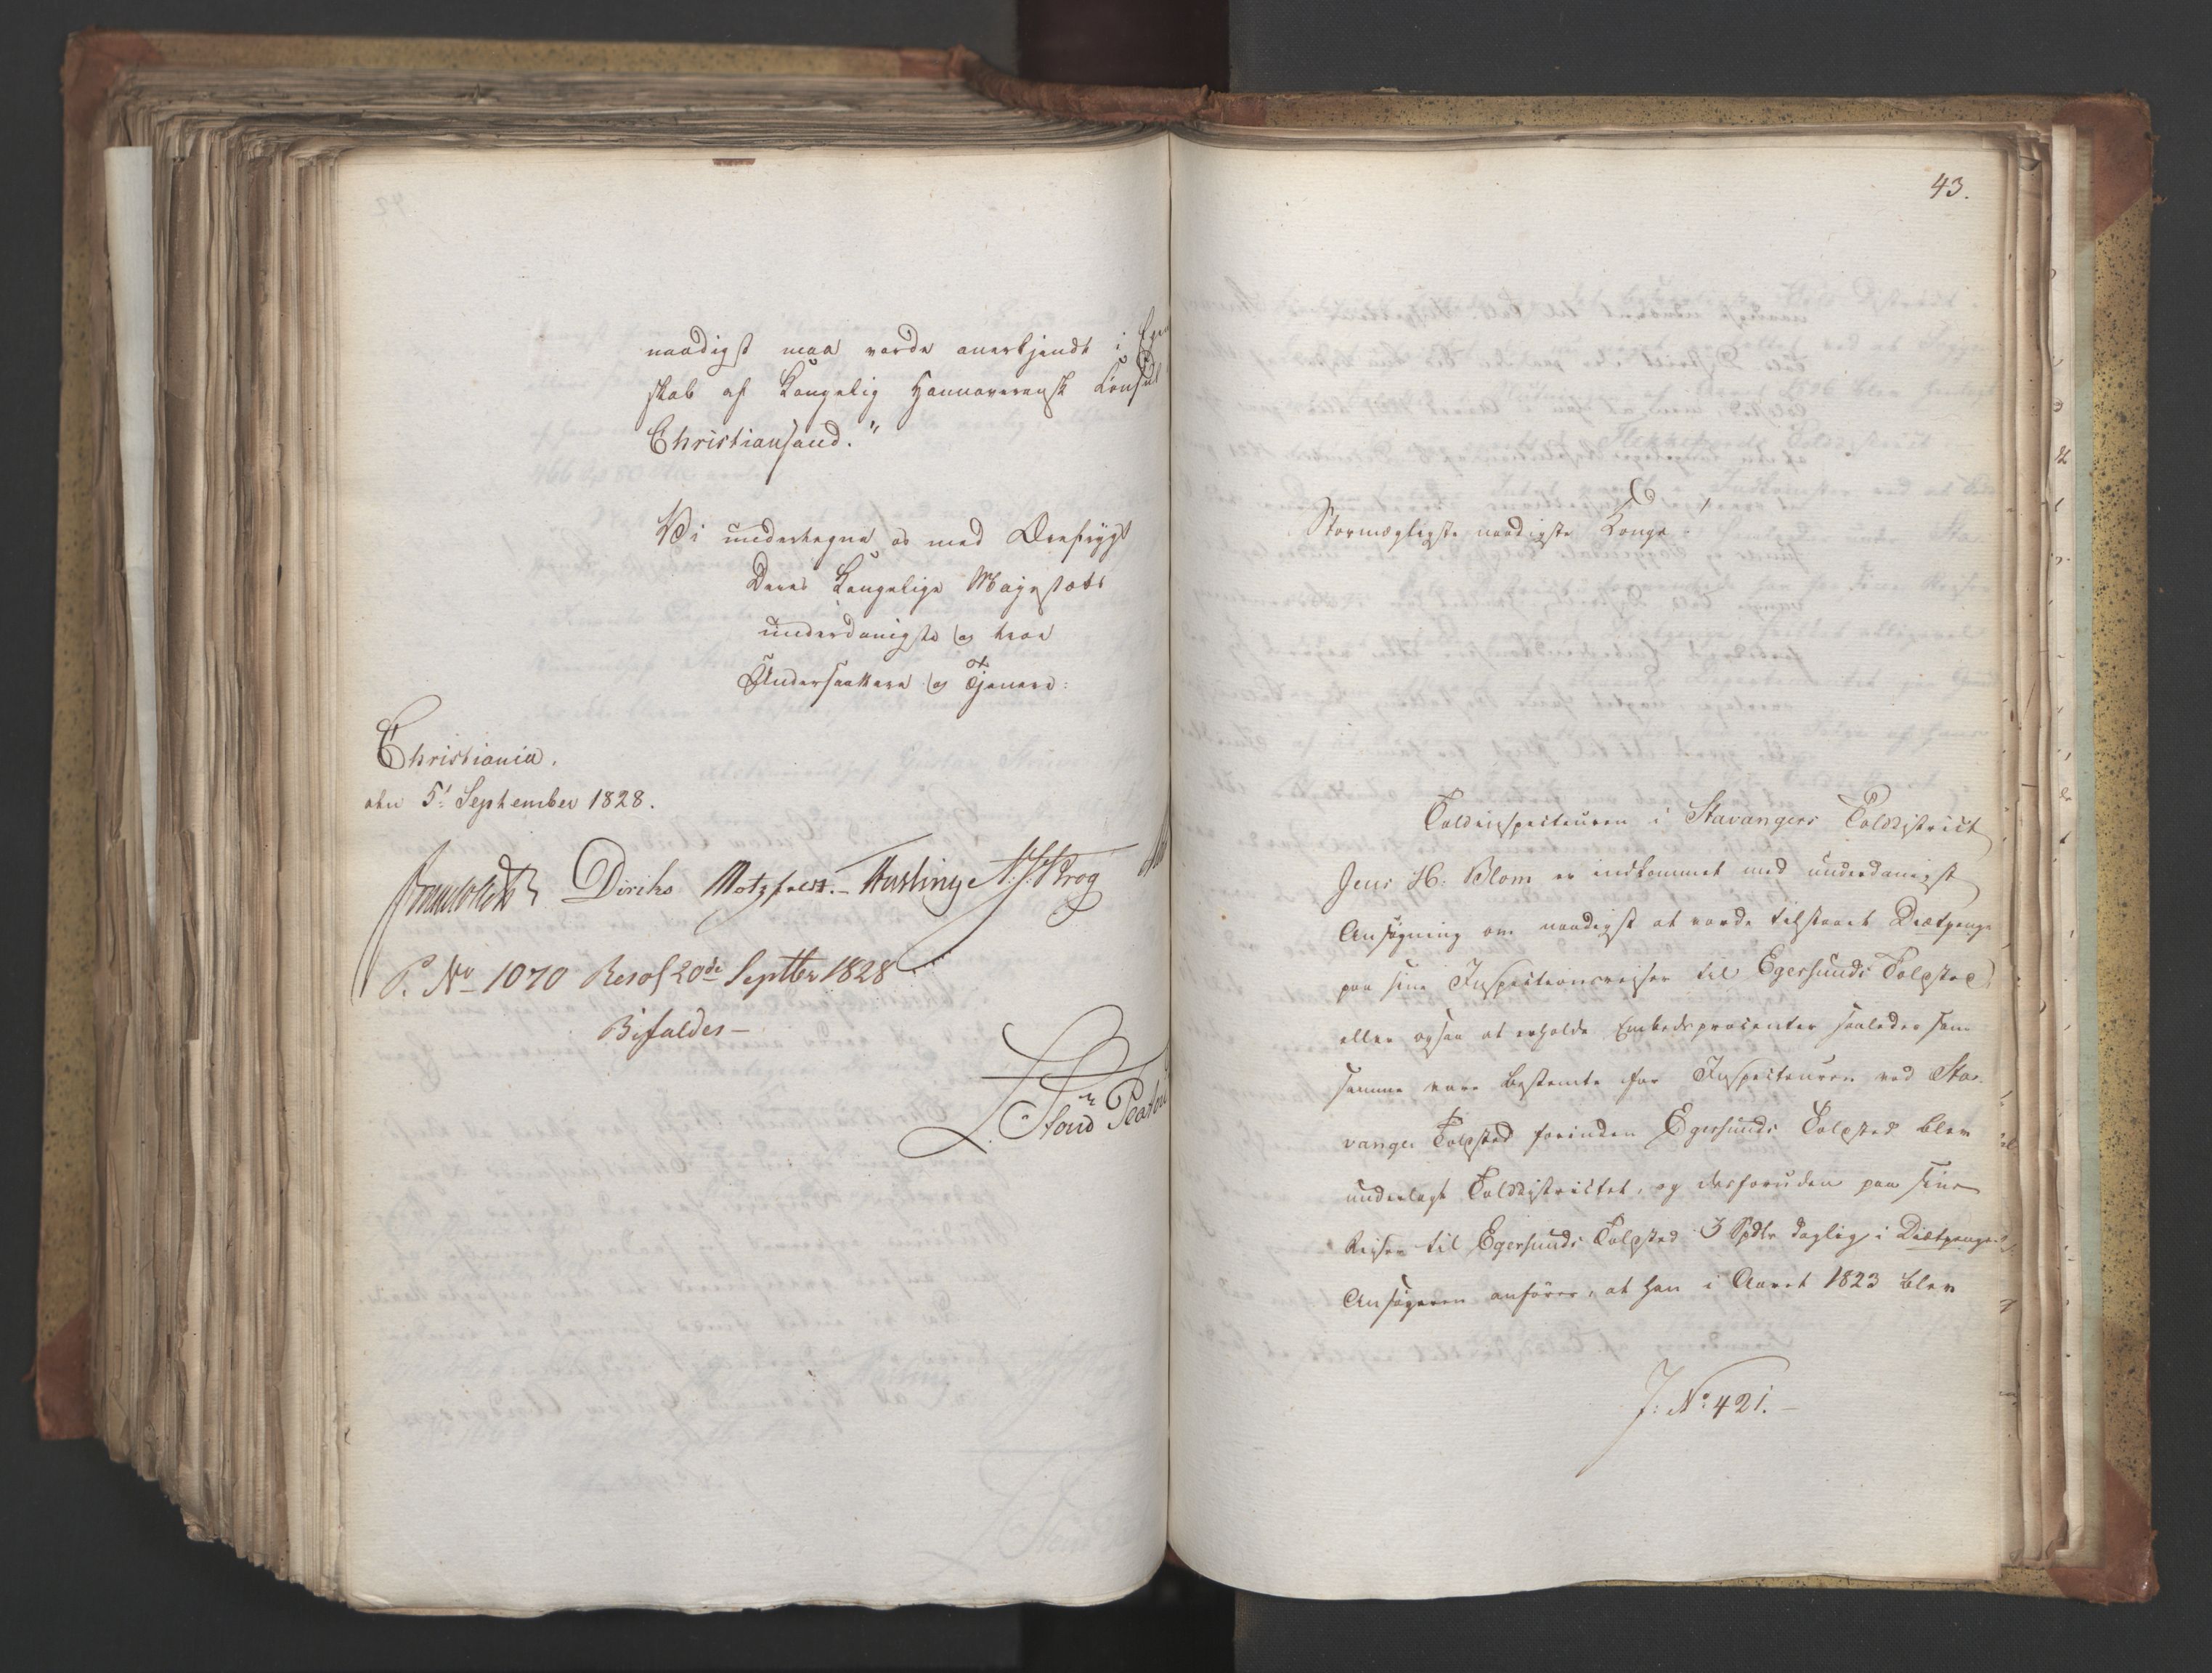 naadigst maa vorde anerkjendt i Egen
skab af Kongelig Hannoveransk Consul
Christiansand."
Vi undertegne os med Ærefrygt
Deres Kongelige Majestæts
underdanigste og troe
Undersaattere og Tjenere:
Christiania,
den 5te September 1828.
Diriks Motzfeldt. Hastinge N. J. Krog
P. No 1070 Resol 20de Septbr 1828
Bifaldes
43.
Stormægtigste naadigste Konge!
Toldinspecteuren i Stavangers Tolddistrict
Jens H. Blom er indkommet med underdanigst
Ansøgning om naadigst at vorde tilstaaet Diætpenge
paa sine Inspectionsreiser til Egersunds Toldsted,
eller ogsaa at erholde Embedsprocenter saaledes som
samme vare bestemte for Inspecteuren ved Sta-
vanger Toldsted forinden Egersunds Toldsted blev
underlagt Tolddistrictet, og desforuden paa sine
Reiser til Egersunds Toldsted 3 Spdlr daglig i Diætpenge.
Ansøgeren anfører, at han i Aaret 1823 blev
J: No 421.